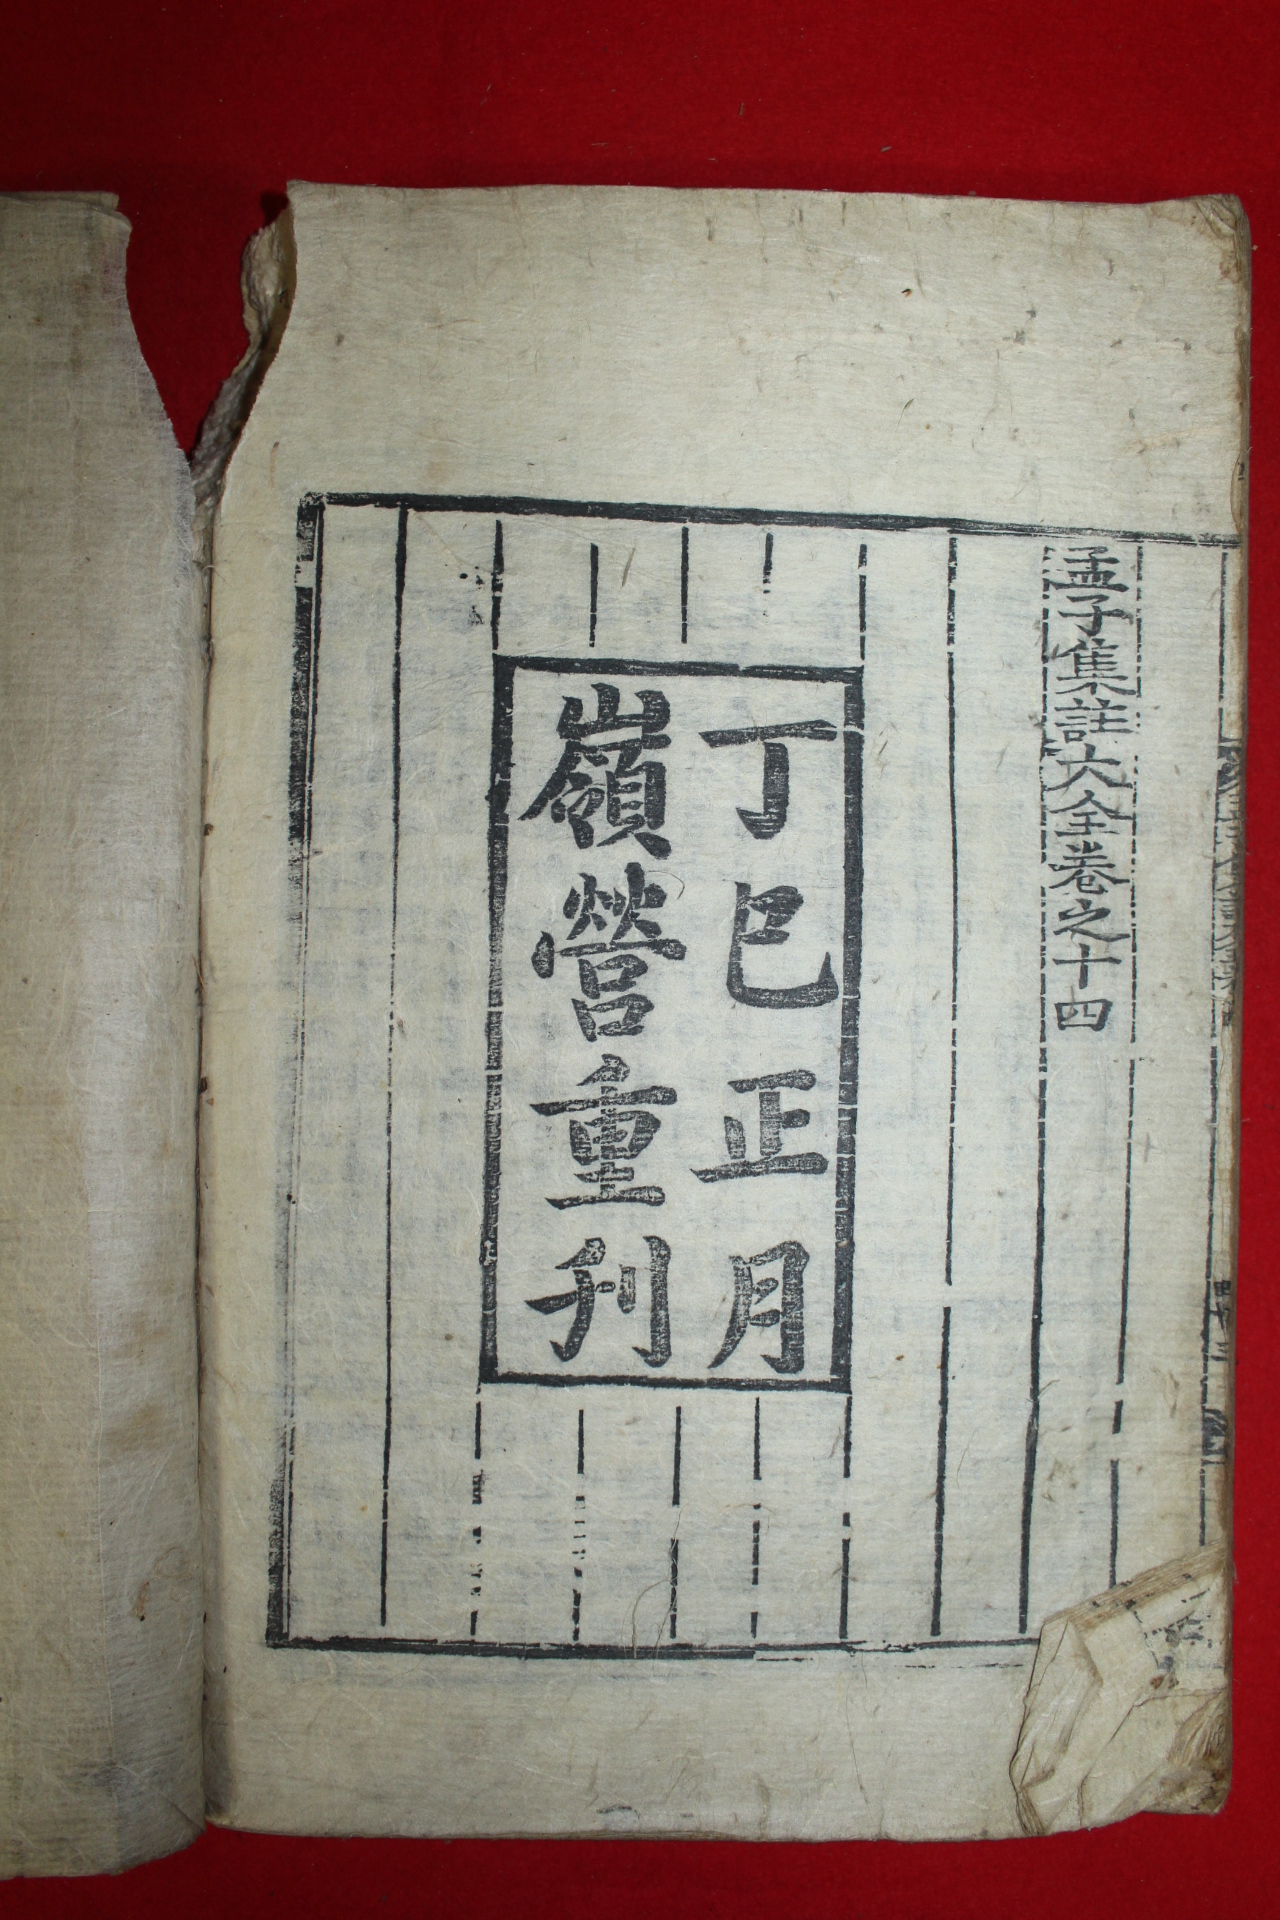 孟子集註大全卷之十四
丁巳正月
嶺營重刋